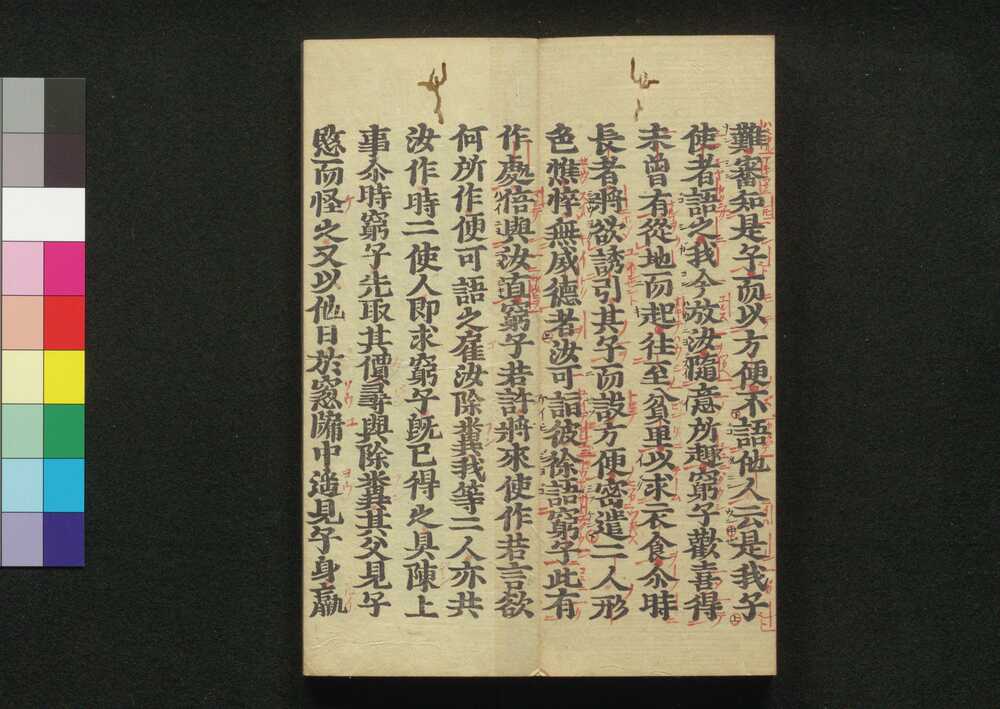 難審知是子而以方便不語他人云是我子
使者語之我今放汝隨意所趣窮子歡喜得
未曾有從地而起往至貧里以求衣食尒時
長者將欲誘引其子而設方便密遣二人形
色憔悴無威德者汝可詣彼徐語窮子此有
作處倍與汝直窮子若許將來使作若言欲
何所作便可語之雇汝除糞我等二人亦共
汝作時二使人即求窮子既已得之具陳上
事尒時窮子先取其價尋與除糞其父見子
愍而怪之又以他日於窓牖中遙見子身羸